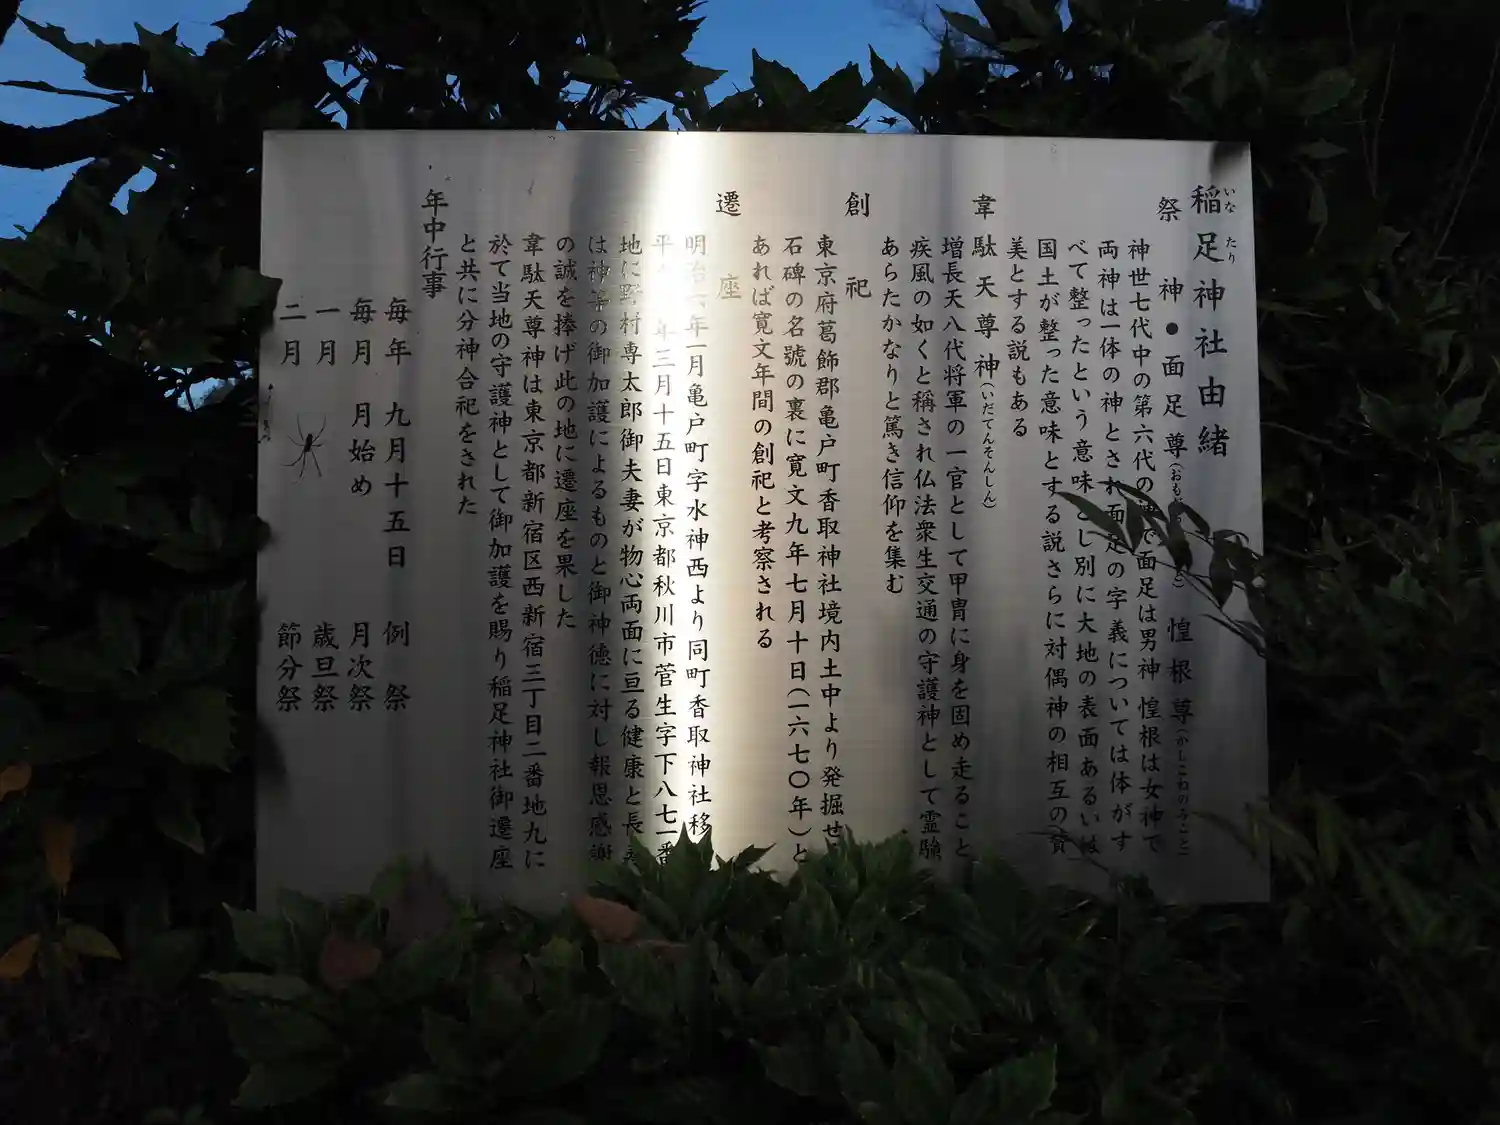 稲足神社由緒
いなたり
祭神●面足尊(おも 惶根尊(かしこねのみこと)
神世七代中の第六代の神で面足は男神 惶根は女神で
両神は一体の神とされ面足の字義については体がす
べて整ったという意味とし別に大地の表面あるいは
国土が整った意味とする説さらに対偶神の相互の賛
美とする説もある
韋駄天尊神(いだてんそんしん)
増長天八代将軍の一官として甲冑に身を固め走ること
疾風の如くと稱され仏法衆生交通の守護神として霊験
あらたかなりと篤き信仰を集む
創祀
東京府葛飾郡亀戸町香取神社境内土中より発掘せ
石碑の名號の裏に寛文九年七月十日(一六七〇年)と
あれば寛文年間の創祀と考察される
遷座
明治六年一月亀戸町字水神西より同町香取神社移
平 年三月十五日東京都秋川市菅生字下八七一番
地に野村専太郎御夫妻が物心両面に亘る健康と長
は神等の御加護によるものと御神德に対し報恩感謝
の誠を捧げ此の地に遷座を果した
韋駄天尊神は東京都新宿区西新宿三丁目二番地九に
於て当地の守護神として御加護を賜り稲足神社御遷座
と共に分神合祀をされた
年中行事
毎年 九月十五日 例祭
毎月 月始め 月次祭
一月 歳旦祭
二月 節分祭